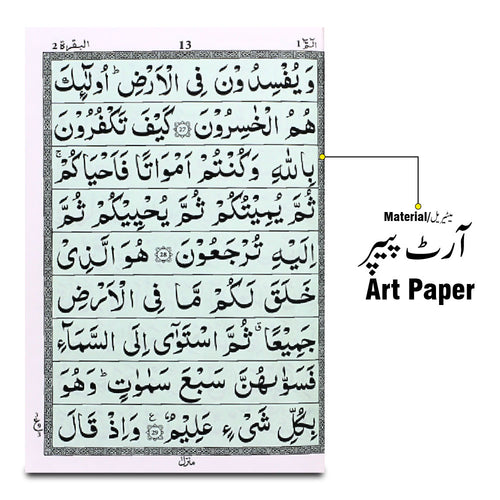 البقرة ٢
13
الٓمّٓ ١
وَيُفْسِدُوْنَ فِى الْاَرْضِ ؕ اُولٰٓئِكَ
هُمُ الْخٰسِرُوْنَ ﴿27﴾ كَيْفَ تَكْفُرُوْنَ
بِاللّٰهِ وَكُنْتُمْ اَمْوَاتًا فَاَحْيَاكُمْ ۚ
ثُمَّ يُمِيْتُكُمْ ثُمَّ يُحْيِيْكُمْ ثُمَّ
اِلَيْهِ تُرْجَعُوْنَ ﴿28﴾ هُوَ الَّذِىْ
خَلَقَ لَكُمْ مَّا فِى الْاَرْضِ
جَمِيْعًا ۗ ثُمَّ اسْتَوٰٓى اِلَى السَّمَآءِ
فَسَوّٰىهُنَّ سَبْعَ سَمٰوٰتٍ ؕ وَهُوَ
بِكُلِّ شَىْءٍ عَلِيْمٌ ﴿29﴾ ع وَاِذْ قَالَ
منزل
Material/میٹیریل
آرٹ پیپر
Art Paper